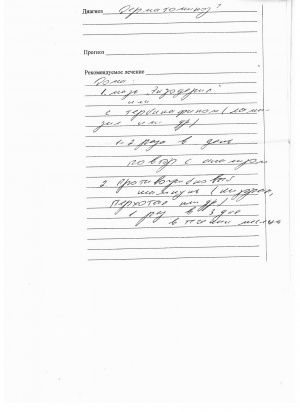 Диагноз Дерматомикоз?
Прогноз
Рекомендуемое лечение
Дома:
1. мазь
или
с тербинафином (лами
зил или др)
1-2 раза в день
повтор с
2. противогрибковый
шампунь (низорал,
перхотал или др)
1 раз в 3 дня
в течении месяца